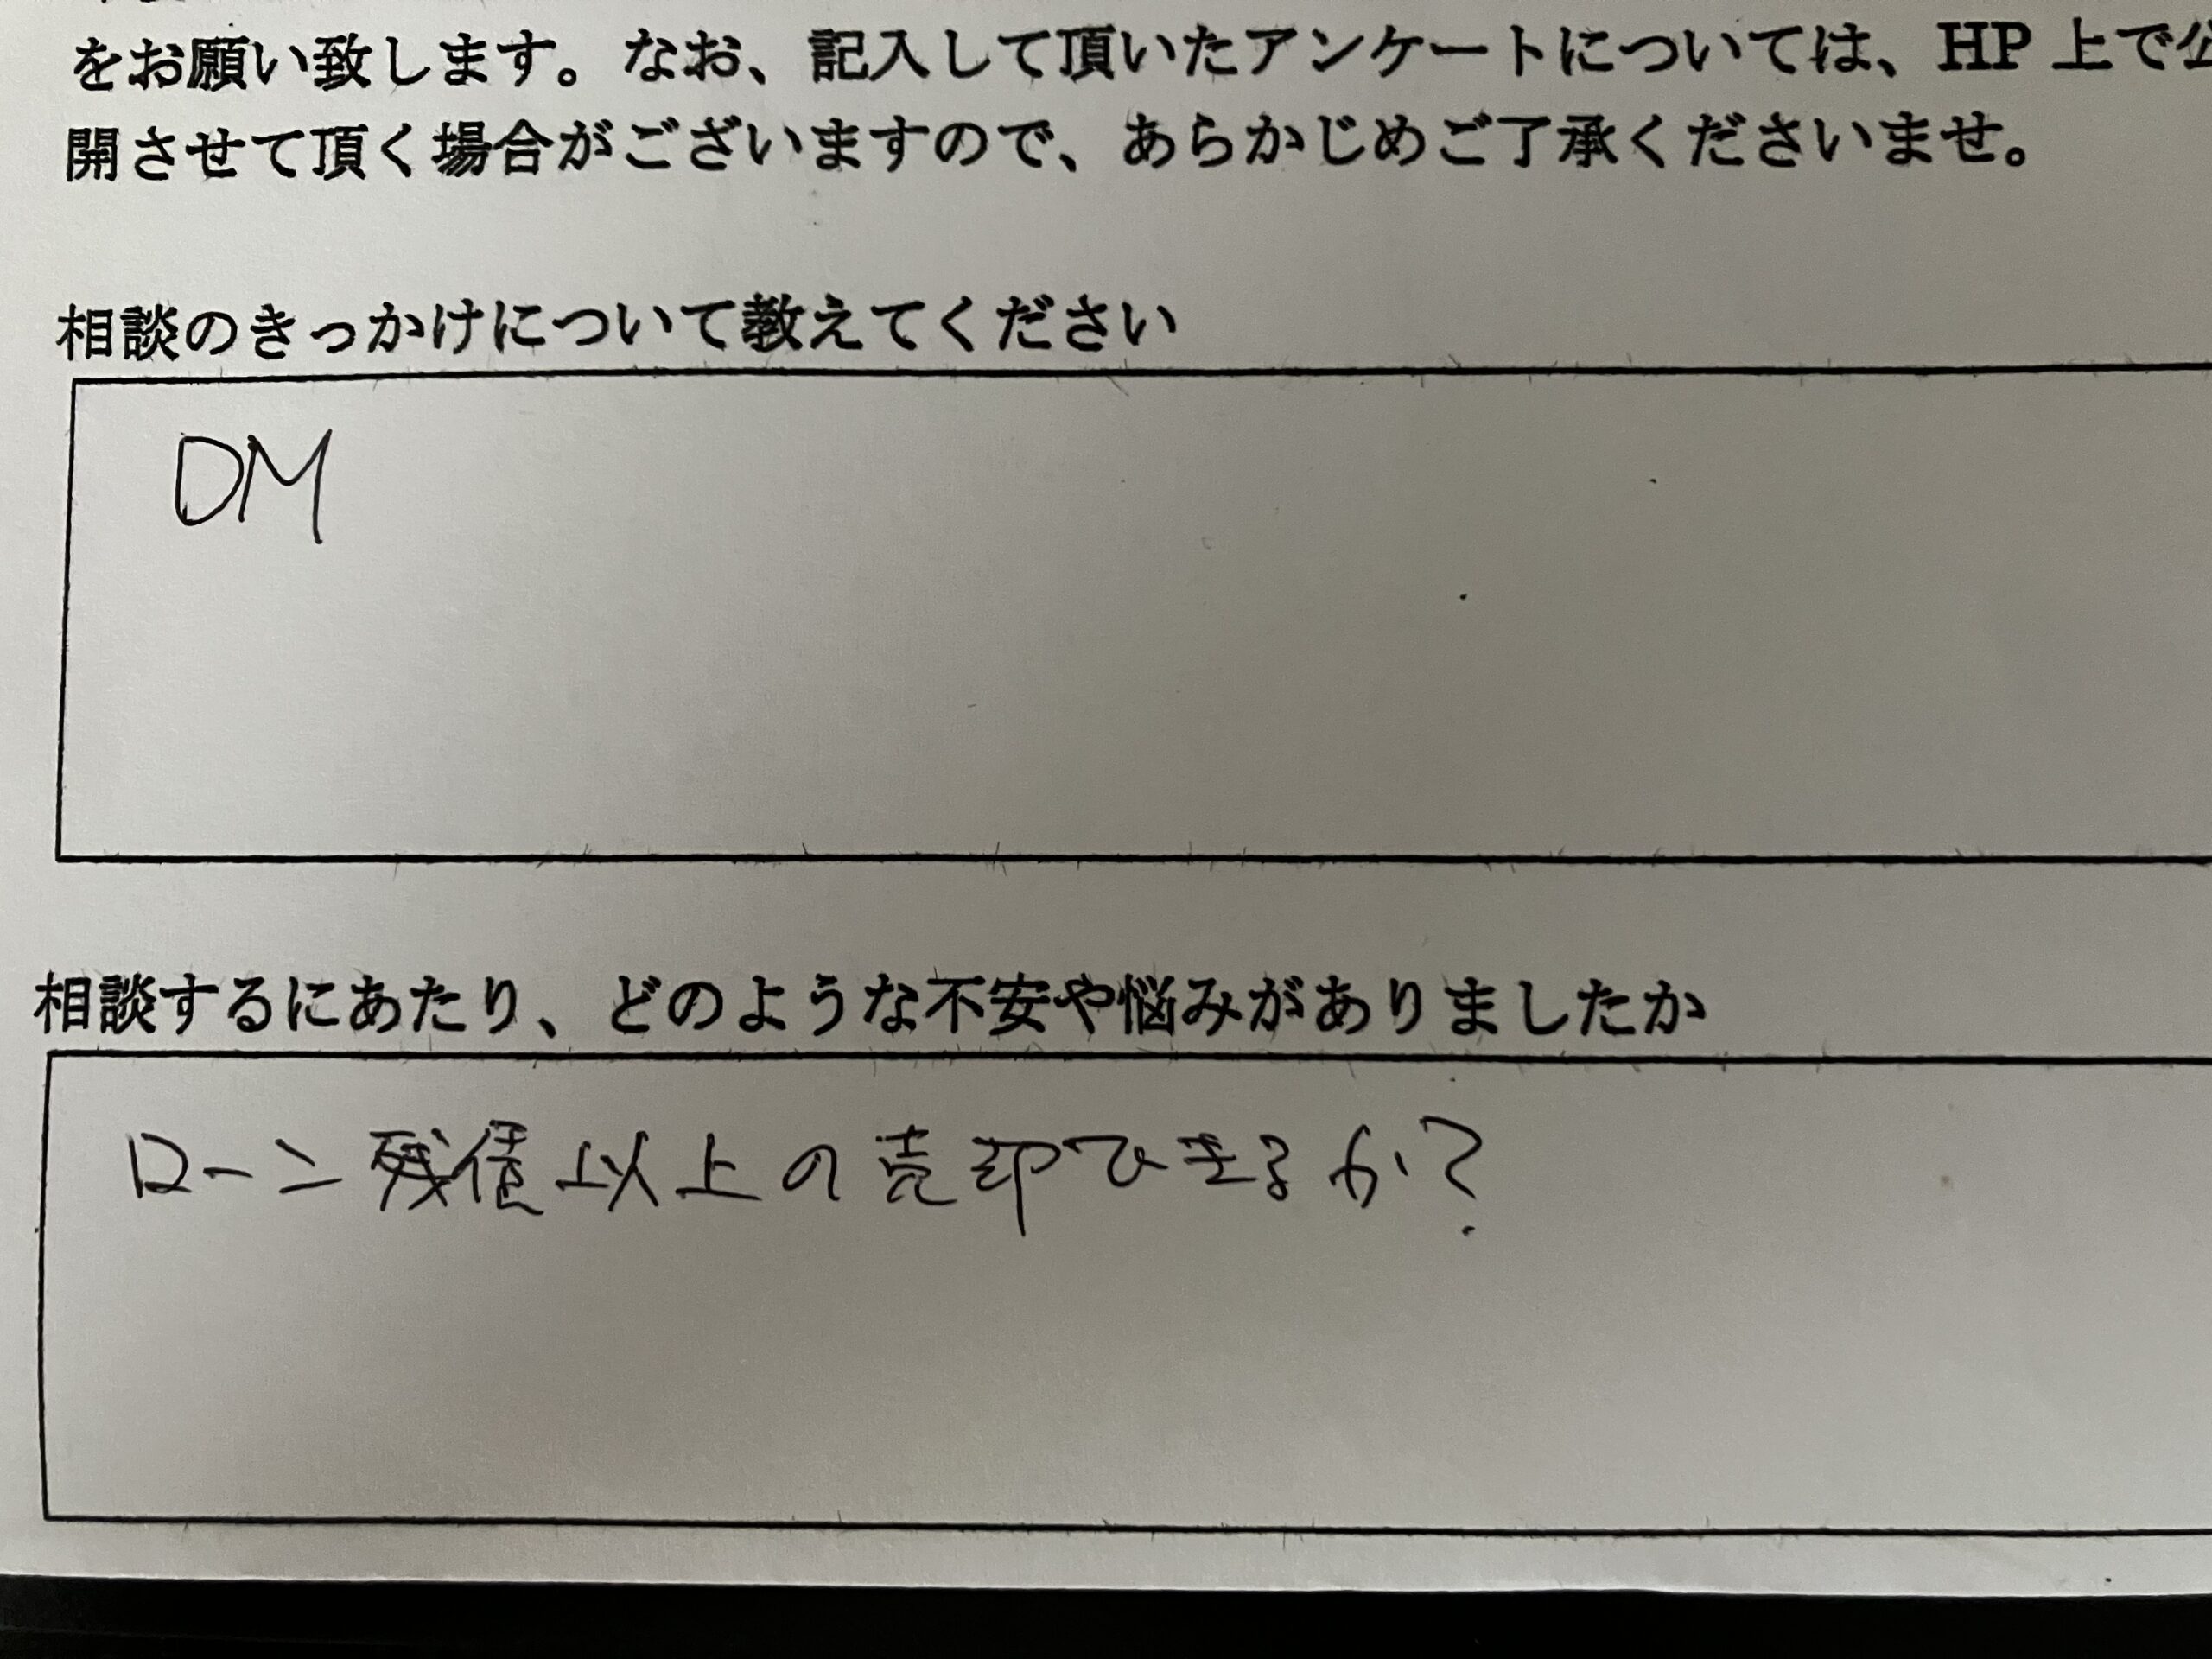 をお願い致します。なお、記入して頂いたアンケートについては、HP 上で公
開させて頂く場合がございますので、あらかじめご了承くださいませ。
相談のきっかけについて教えてください
DM
相談するにあたり、どのような不安や悩みがありましたか
ローン残債以上の売却できるか?